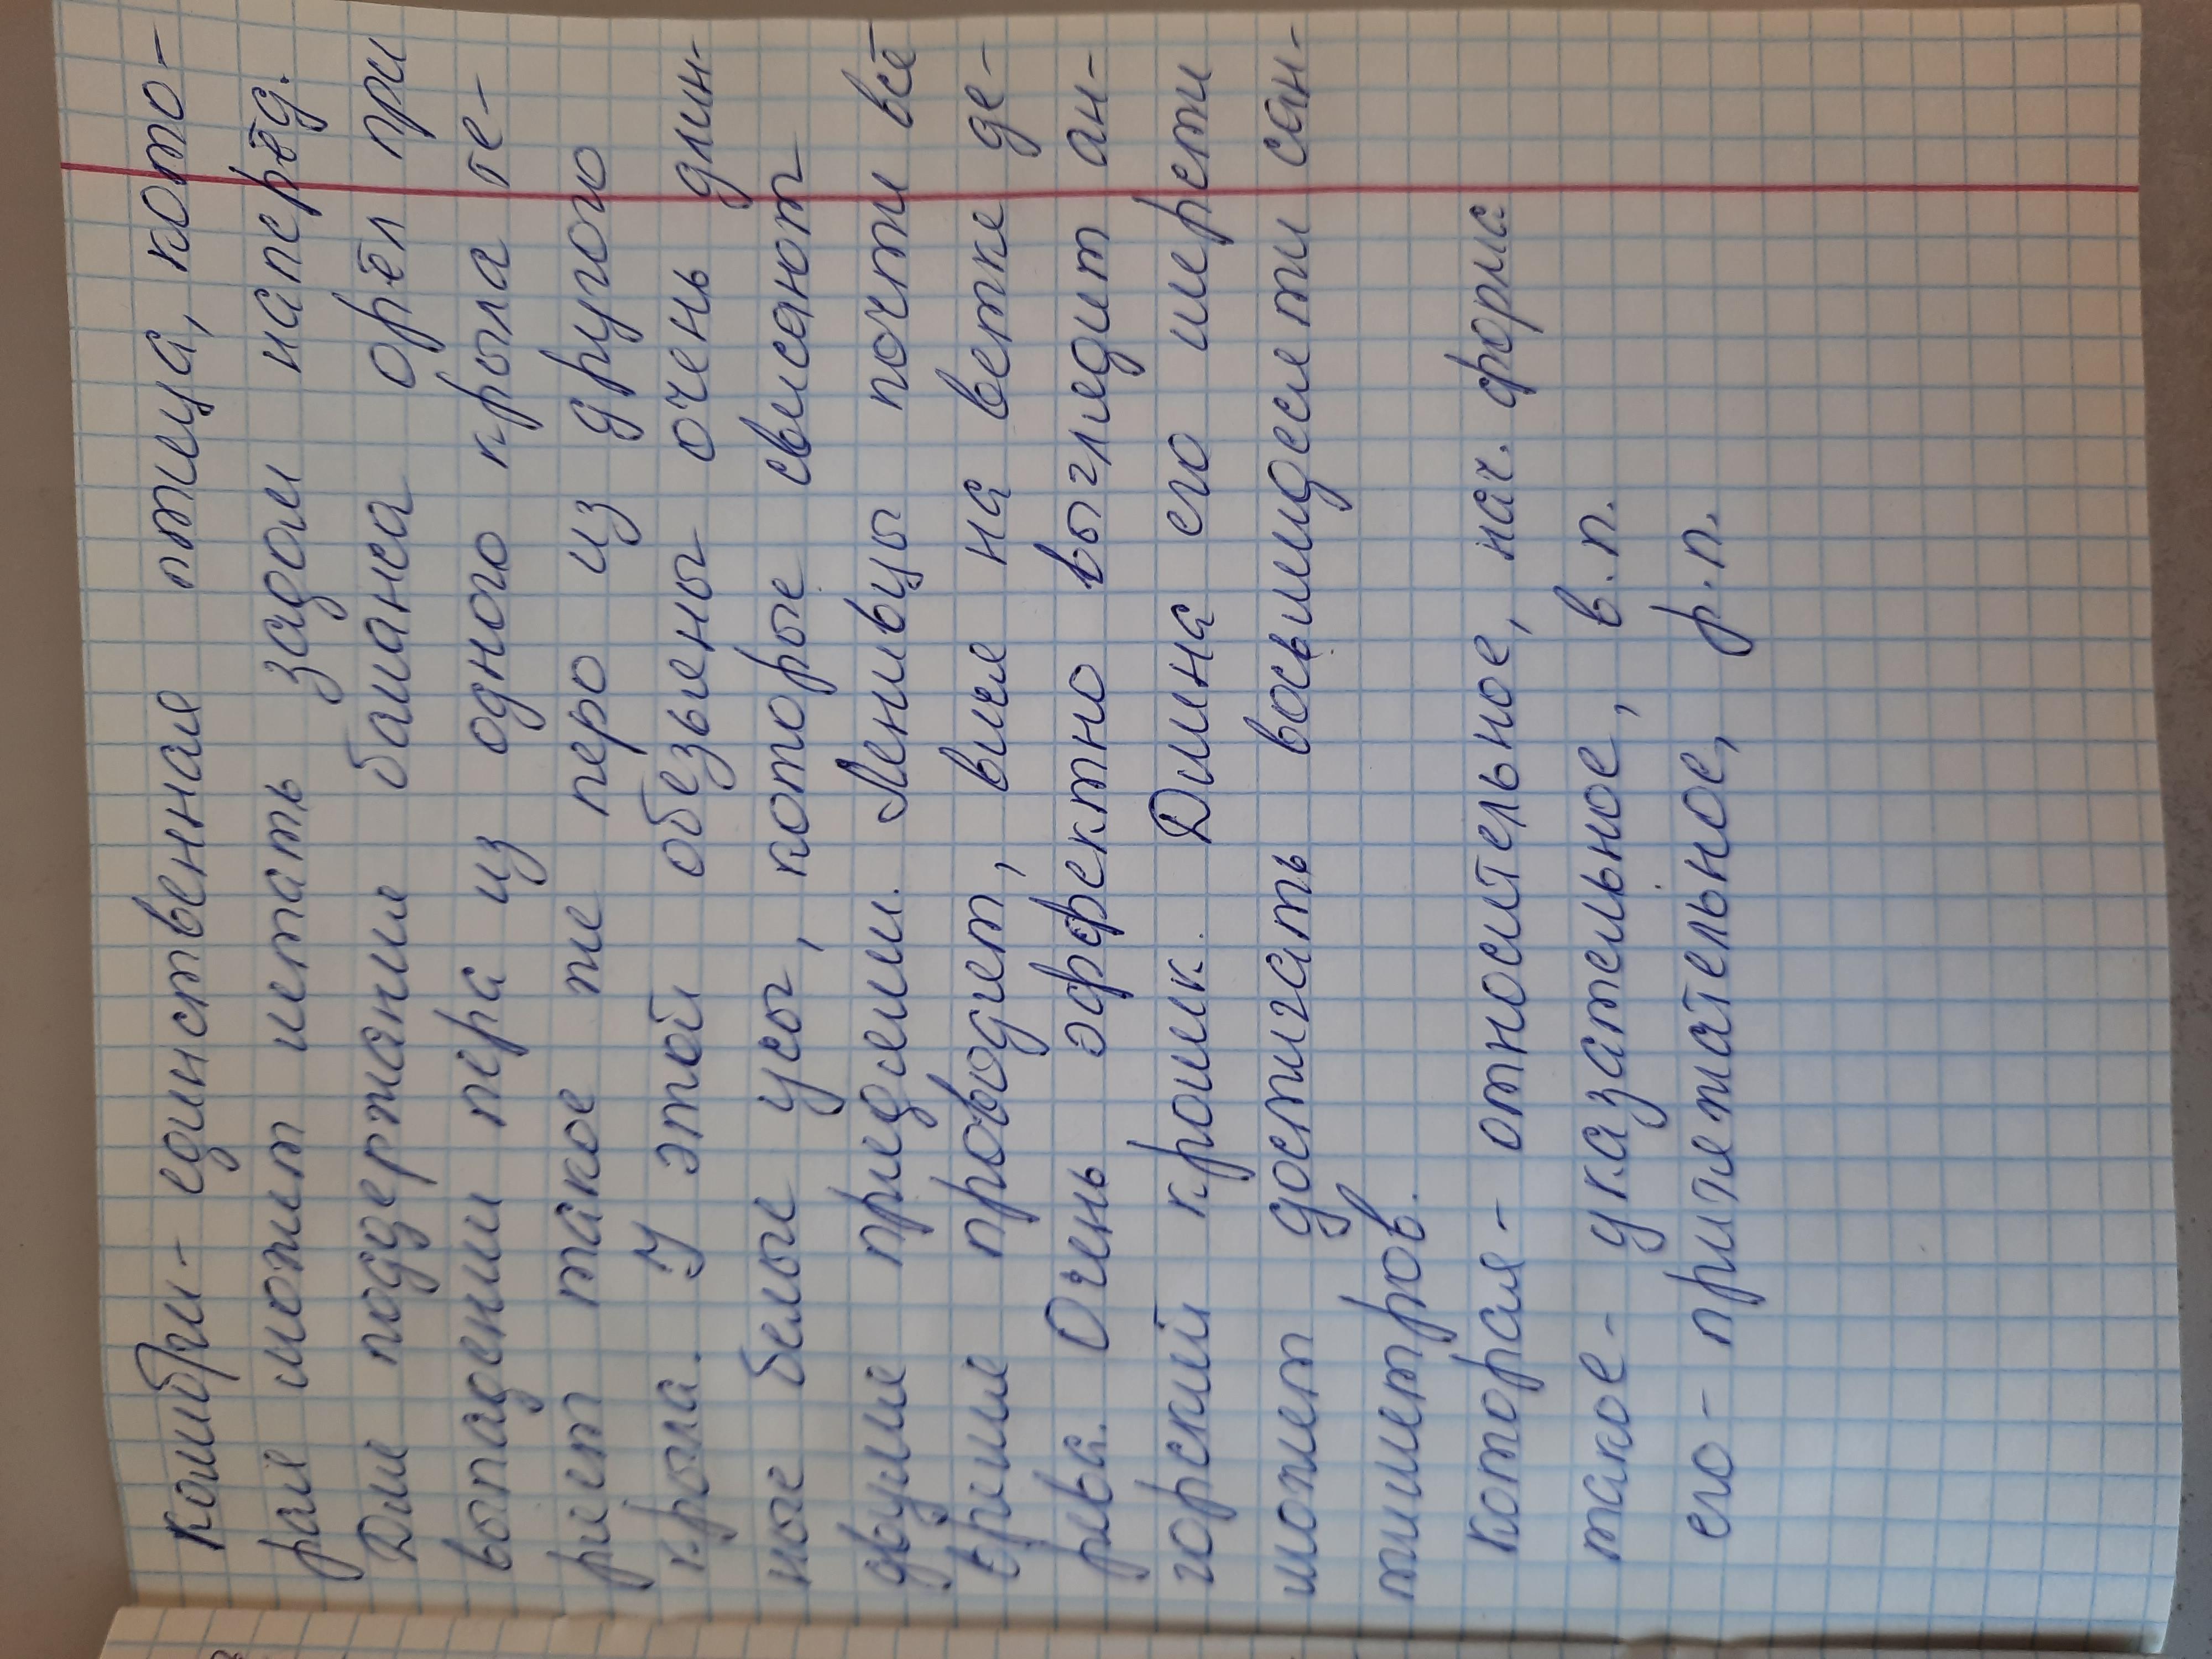 Колибри - единственная птица, кото-
рая может летать задом наперёд.
Для поддержания баланса орёл при
выпадении пера из одного крыла те-
ряет такое же перо из другого
крыла. У этой обезьены очень длин-
ные белые усы, которые свисают
двумя прядями. Ленивцы почти всё
время проводят, вися на ветке де-
рева. Очень эффектно выглядит ан-
горский кролик. Длина его шерсти
может достигать восьмидесяти сан-
тиметров.
которая - относительное, нач. форма
такое - указательное, в.п.
его - притяжательное, р.п.